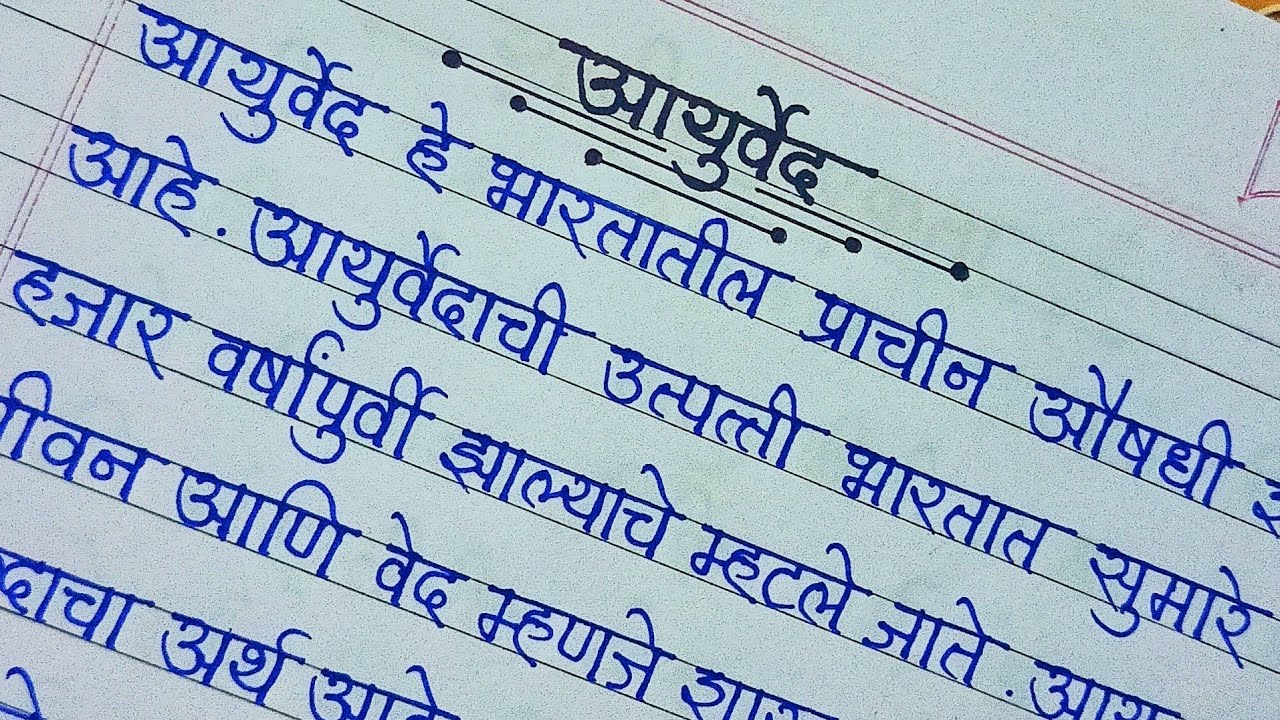 आयुर्वेद
आयुर्वेद हे भारतातील प्राचीन औषधी
आहे. आयुर्वेदाची उत्पत्ती भारतात सुमारे
हजार वर्षांपुर्वी झाल्याचे म्हटले जाते.
आणि वेद म्हणजे
अर्थ